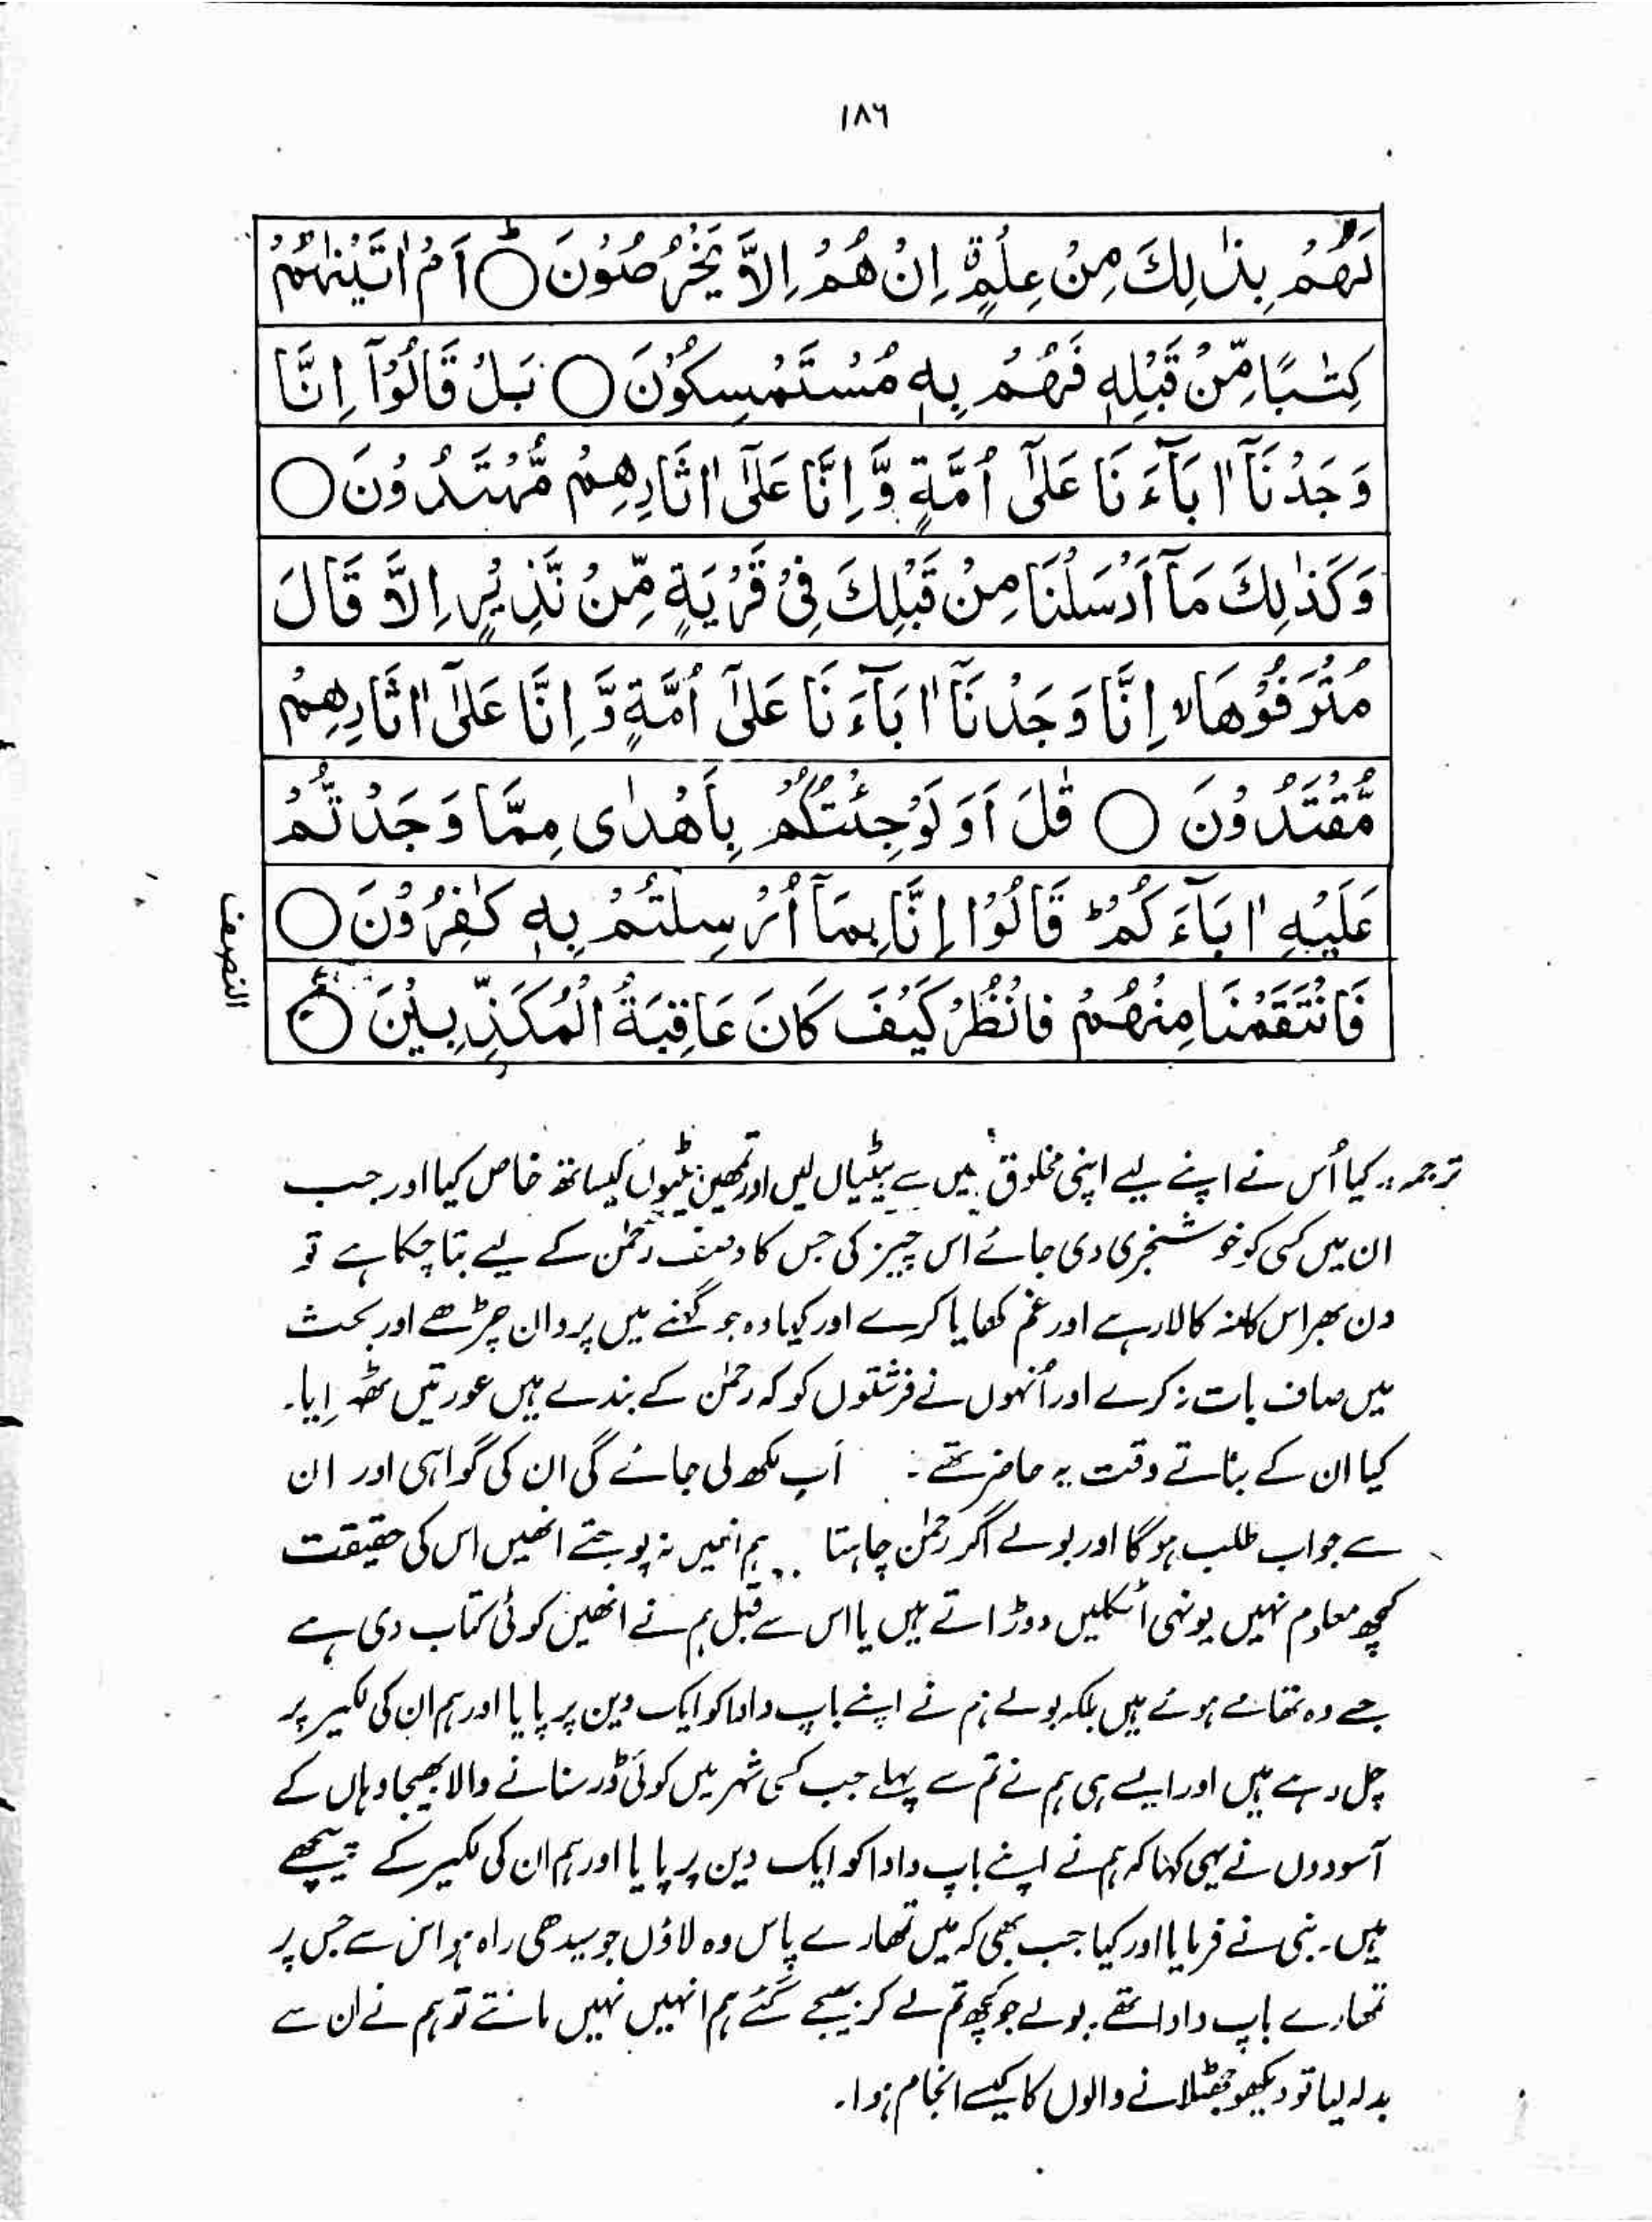 ۱۸۶
لَهُمْ بِذٰلِكَ مِنْ عِلْمٍ ۗ اِنْ هُمْ اِلَّا يَخْرُصُوْنَ ○ اَمْ اٰتَيْنٰهُمْ
كِتٰبًا مِّنْ قَبْلِهٖ فَهُمْ بِهٖ مُسْتَمْسِكُوْنَ ○ بَلْ قَالُوْٓا اِنَّا
وَجَدْنَآ اٰبَآءَنَا عَلٰٓى اُمَّةٍ وَّ اِنَّا عَلٰٓى اٰثَارِهِمْ مُّهْتَدُوْنَ ○
وَكَذٰلِكَ مَآ اَرْسَلْنَا مِنْ قَبْلِكَ فِىْ قَرْيَةٍ مِّنْ نَّذِيْرٍ اِلَّا قَالَ
مُتْرَفُوْهَا ۙ اِنَّا وَجَدْنَآ اٰبَآءَنَا عَلٰٓى اُمَّةٍ وَّ اِنَّا عَلٰٓى اٰثَارِهِمْ
مُّقْتَدُوْنَ ○ قٰلَ اَوَلَوْ جِئْتُكُمْ بِاَهْدٰى مِمَّا وَجَدْتُّمْ
عَلَيْهِ اٰبَآءَكُمْ ؕ قَالُوْا اِنَّا بِمَآ اُرْسِلْتُمْ بِهٖ كٰفِرُوْنَ ○
النصف
فَانْتَقَمْنَا مِنْهُمْ فَانْظُرْ كَيْفَ كَانَ عَاقِبَةُ الْمُكَذِّبِيْنَ ○
ترجمہ:۔ کیا اُس نے اپنے لیے اپنی مخلوق میں سے بیٹیاں لیں اور تمھیں بیٹیوں کیساتھ خاص کیا اور جب
ان میں کسی کو خوشخبری دی جائے اس چیز کی جس کا وصف رحمٰن کے لیے بتا چکا ہے تو
دن بھر اس کا منہ کالا رہے اور غم کھایا کرے اور کیا وہ جو گہنے میں پروان چڑھے اور بحث
میں صاف بات نہ کرے اور اُنہوں نے فرشتوں کو کہ رحمٰن کے بندے ہیں عورتیں ٹھہرایا۔
کیا ان کے بناتے وقت یہ حاضر تھے۔ اَب لکھ لی جائے گی ان کی گواہی اور ان
سے جواب طلب ہوگا اور بولے اگر رحمٰن چاہتا ہم انہیں نہ پوجتے انھیں اس کی حقیقت
کچھ معلوم نہیں یونہی اٹکلیں دوڑاتے ہیں یا اس سے قبل ہم نے انھیں کوئی کتاب دی ہے
جسے وہ تھامے ہوئے ہیں بلکہ بولے ہم نے اپنے باپ دادا کو ایک دین پر پایا اور ہم ان کی لکیر پر
چل رہے ہیں اور ایسے ہی ہم نے تم سے پہلے جب کسی شہر میں کوئی ڈر سنانے والا بھیجا وہاں کے
آسودوں نے یہی کہا کہ ہم نے اپنے باپ دادا کو ایک دین پر پایا اور ہم ان کی لکیر کے پیچھے
ہیں۔ نبی نے فرمایا اور کیا جب بھی کہ میں تمھارے پاس وہ لاؤں جو سیدھی راہ ہو اس سے جس پر
تمھارے باپ دادا تھے۔ بولے جو کچھ تم لے کر بھیجے گئے ہم انہیں نہیں مانتے تو ہم نے ان سے
بدلہ لیا تو دیکھو جھٹلانے والوں کا کیسے انجام ہوا۔